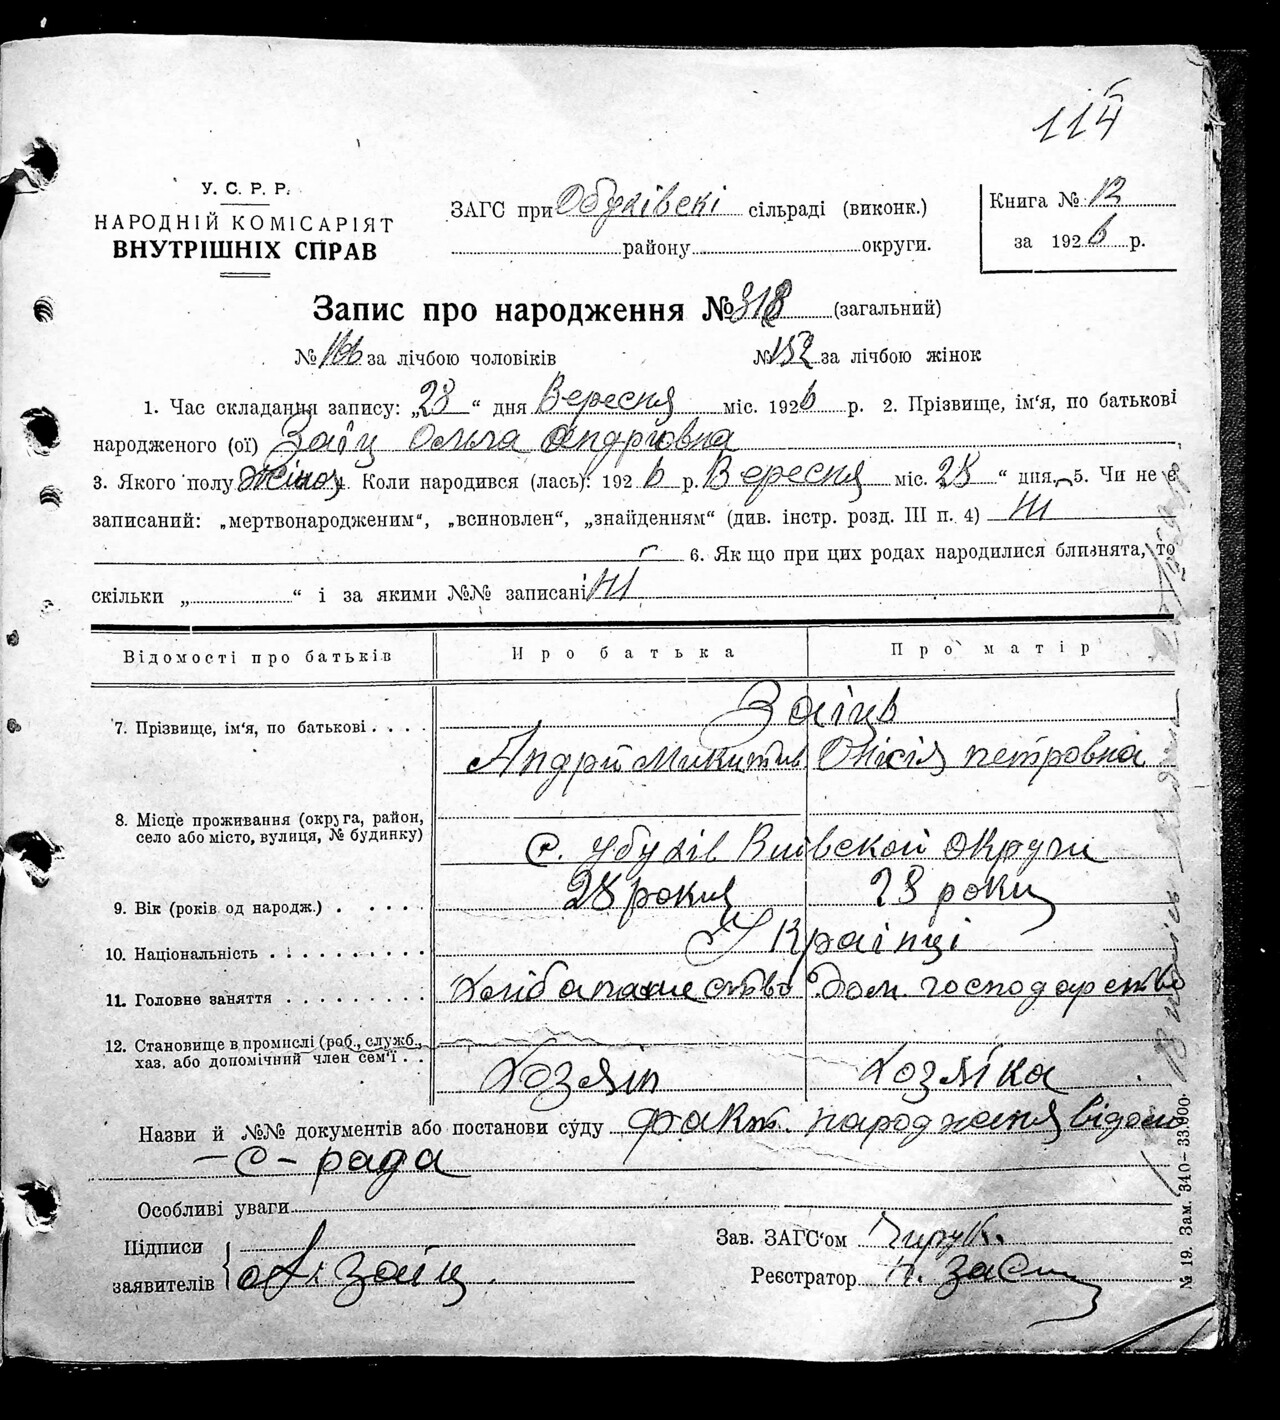 114
У. С. Р. Р.
НАРОДНІЙ КОМІСАРІЯТ
ВНУТРІШНІХ СПРАВ
ЗАГС при Обухівскі сільраді (виконк.)
району округи.
Книга № 12
за 1926 р.
Запис про народження № 318 (загальний)
№ 166 за лічбою чоловіків № 152 за лічбою жінок
1. Час складання запису: „28“ дня Вересня міс. 1926 р. 2. Прізвище, ім'я, по батькові
народженого (ої) Заїц Ольга Андріовна
3. Якого полу жіноч 4. Коли народився (лась): 1926 р. Вересня міс. 28“ дня, 5. Чи не є
записаний: „мертвонародженим“, „всиновлен“, „знайденням“ (див. інстр. розд. III п. 4) Ні
6. Як що при цих родах народилися близнята, то
скільки „ “ і за якими №№ записані Ні
Відомості про батьків Про батька Про матір
7. Прізвище, ім'я, по батькові Заіцв
Андрій Микитив Онісія петровна
8. Місце проживання (округа, район,
село або місто, вулиця, № будинку) с. Убухів Киівскои округи
9. Вік (років од народж.) 28 рокив 28 роки
10. Національність Украінці
11. Головне заняття Хлібапашество Дом. господарство
12. Становище в промислі (роб., служб.,
хаз. або допомічний член сем'ї Хозяін Хозяйка
Назви й №№ документів або постанови суду факт. народженя відомо
— с — рада
Особливі уваги
Підписи
заявителів А. Заїц.
Зав. ЗАГС'ом
Реєстратор
№ 19. Зам. 340–33.900.